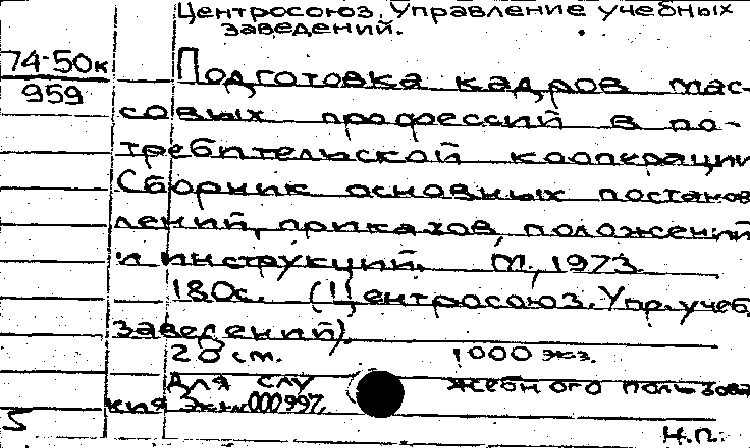 Центросоюз. Управление учебных
заведений.
74-50к
959
Подготовка кадров мас-
совых профессий в по-
требительской кооперации
Сборник основных постанов
лений, приказов, положений
и инструкций. М., 1973.
180с. (Центросоюз. Упр. учеб.
заведений).
20 см. 1000 экз.
Для слу жебного пользова
ния Экз.№000997.
5 Н.П.